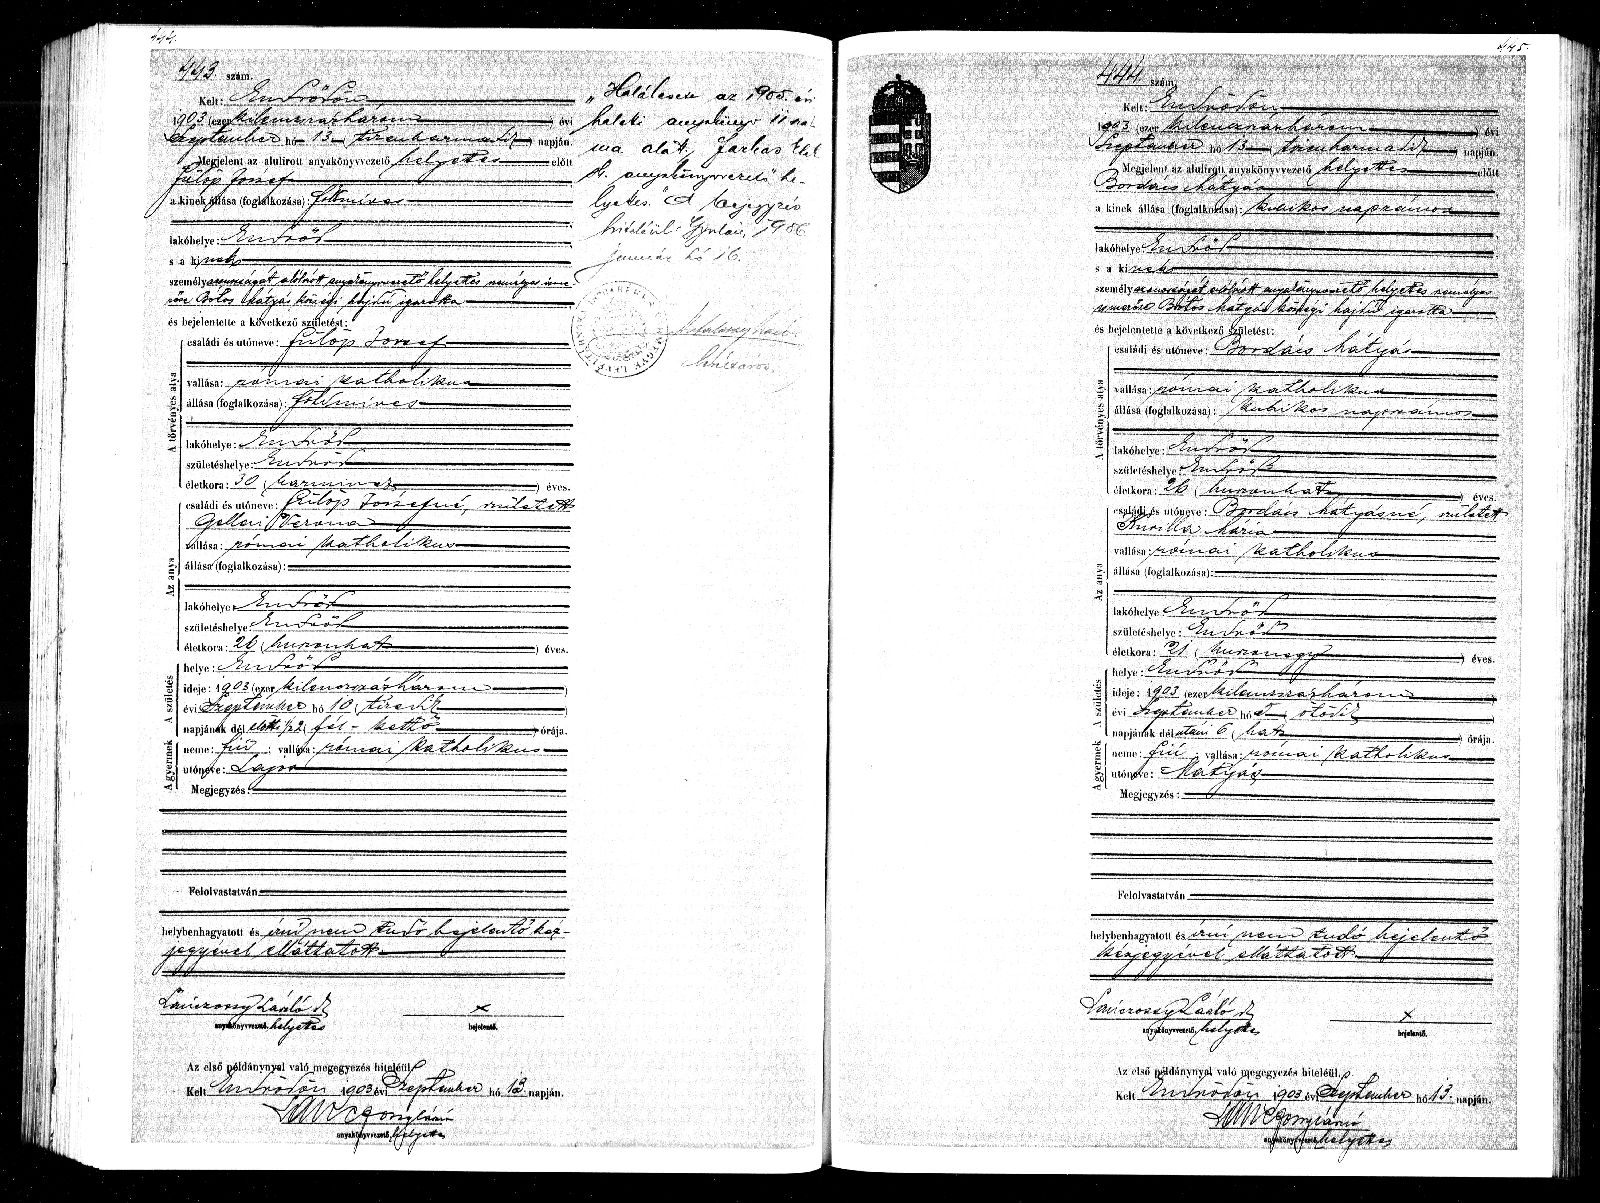 444.
443. szám.
Kelt: Endrődön
1903 (ezer kilenczszázhárom) évi
Szeptember hó 13 (tizenharmadik) napján.
Megjelent az alulirott anyakönyvvezető helyettes előtt
Fülöp József
a kinek állása (foglalkozása): földmíves
lakóhelye: Endrőd
s a kinek
személyazonosságát alólírott anyakönyvvezető helyettes
Botos Mátyás községi hajdú igazolta
és bejelentette a következő születést:
A törvényes atya
családi és utóneve: Fülöp József
vallása: római katholikus
állása (foglalkozása): földmíves
lakóhelye: Endrőd
születéshelye: Endrőd
életkora: 30 (harmincz) éves.
Az anya
családi és utóneve: Fülöp Józsefné, született
Gellai Verona
vallása: római katholikus
állása (foglalkozása):
lakóhelye: Endrőd
születéshelye: Endrőd
életkora: 26 (huszonhat) éves.
A születés
helye: Endrőd
ideje: 1903 (ezer kilenczszázhárom)
évi Szeptember hó 10 (tizedik)
napjának dél előtti 1/2 2 (fél-kettő) órája.
A gyermek
neme: fiú; vallása: római katholikus
utóneve: Lajos
Megjegyzés:
Felolvastatván
helybenhagyatott és írni nem tudó bejelentő kéz-
jegyével elláttatott
László
anyakönyvvezető helyettes
x
bejelentő.
Az első példánynyal való megegyezés hiteléül
Kelt Endrődön 1903 évi Szeptember hó 13 napján.
anyakönyvvezető helyettes
„Halálesete az 1905. évi
halálozási anyakönyv 11 szá-
ma alatt. Farkas
anyakönyvvezető he-
lyettes." A bejegyzés
hiteléül Gyulán, 1906.
január hó 16.
levéltáros.
445.
444 szám.
Kelt: Endrődön
1903 (ezer kilenczszázhárom) évi
Szeptember hó 13 (tizenharmadik) napján.
Megjelent az alulirott anyakönyvvezető helyettes előtt
Bordács Mátyás
a kinek állása (foglalkozása): kubikos napszámos
lakóhelye: Endrőd
s a kinek
személyazonosságát alólírott anyakönyvvezető helyettes személyes
ismerőse Botos Mátyás községi hajdú igazolta
és bejelentette a következő születést:
A törvényes atya
családi és utóneve: Bordács Mátyás
vallása: római katholikus
állása (foglalkozása): kubikos napszámos
lakóhelye: Endrőd
születéshelye: Endrőd
életkora: 26 (huszonhat) éves.
Az anya
családi és utóneve: Bordács Mátyásné, született
Mária
vallása: római katholikus
állása (foglalkozása):
lakóhelye: Endrőd
születéshelye: Endrőd
életkora: 21 (huszonegy) éves.
A születés
helye: Endrőd
ideje: 1903 (ezer kilenczszázhárom)
évi Szeptember hó 5 (ötödik)
napjának dél utáni 6 (hat) órája.
A gyermek
neme: fiú; vallása: római katholikus
utóneve: Mátyás
Megjegyzés:
Felolvastatván
helybenhagyatott és írni nem tudó bejelentő
kézjegyével elláttatott
László
anyakönyvvezető helyettes
x
bejelentő.
Az első példánynyal való megegyezés hiteléül.
Kelt Endrődön 1903 évi Szeptember hó 13. napján.
anyakönyvvezető helyettes